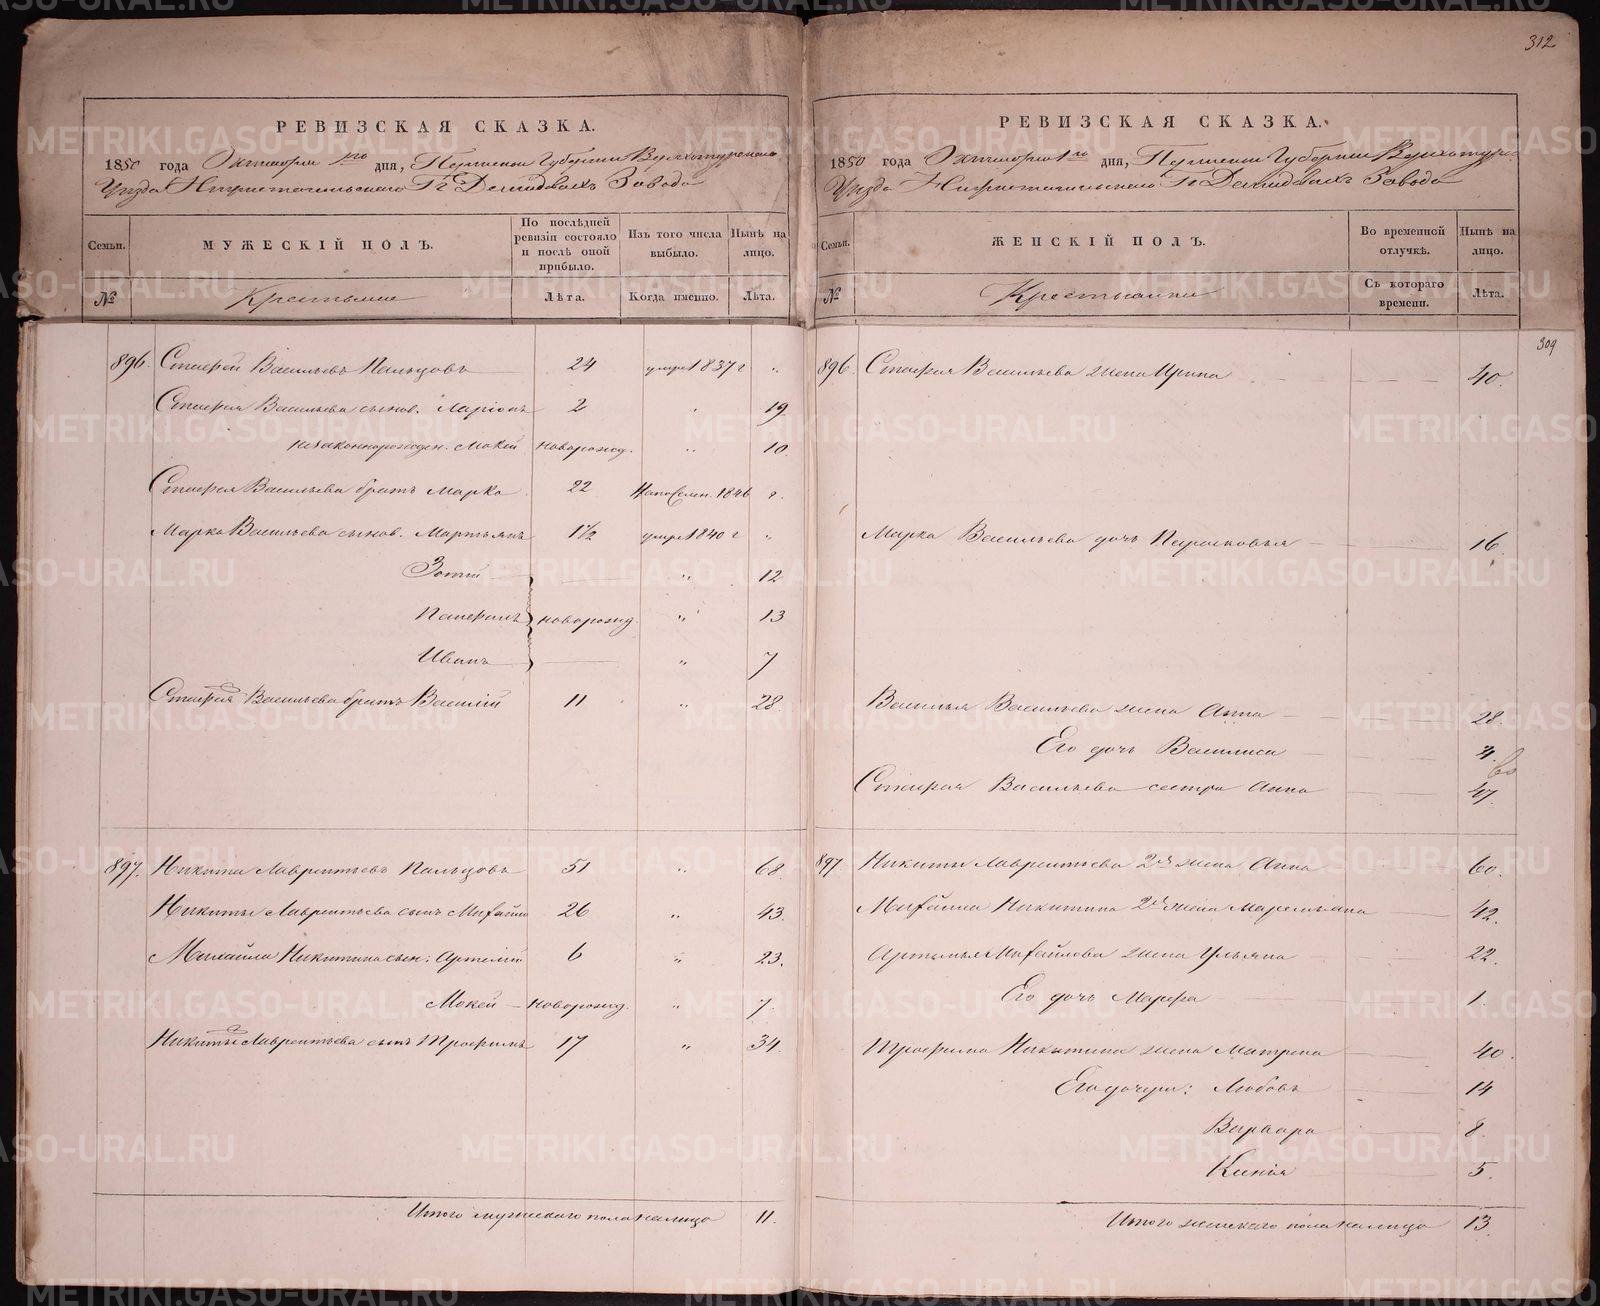 312
РЕВИЗСКАЯ СКАЗКА.
1850 года Октября 1го дня, Пермской Губернии Верхотурскаго
Уѣзда Нижнетагильскаго Гг Демидовыхъ Завода
Семьи. МУЖЕСКІЙ ПОЛЪ. По послѣдней ревизіи состояло и послѣ оной прибыло. Изъ того числа выбыло. Нынѣ на лицо.
№ Крестьяне Лѣта. Когда именно. Лѣта.
896. Стафей Васильевъ Пальцовъ 24 умре 1837 г "
Стафея Васильева сынов. Ларіонъ 2 " 19
незаконнорожден. Мокей новорожд. " 10.
Стафея Васильева братъ Марко 22 На посѣлен. 1846 г.
Марка Васильева сынов. Мартьянъ 1½ умре 1840 г "
Зотій " 12
Панфилъ новорожд. " 13
Иванъ " 7
Стафея Васильева братъ Василій 11 " 28.
897. Никита Лаврентьевъ Пальцовъ 51 " 68
Никиты Лаврентьева сынъ Михайло 26 " 43.
Михайла Никитина сын: Артемій 6 " 23.
Мокей новорожд. " 7.
Никиты Лаврентьева сынъ Трофимъ 17 " 34.
Итого мужескаго пола налицо 11.
РЕВИЗСКАЯ СКАЗКА.
1850 года Октября 1го дня, Пермской Губернии Верхотурс
Уѣзда Нижнетагильскаго Гг Демидовыхъ Завода
Семьи. ЖЕНСКІЙ ПОЛЪ. Во временной отлучкѣ. Нынѣ на лицо.
№ Крестьянки Съ котораго времени. Лѣта.
309
896. Стафея Васильева жена Ирина 40.
Марка Васильева дочь Парасковья 16.
Василья Васильева жена Анна 28.
Его дочь Василиса 4.
Стафея Васильева сестра Анна 47.
897. Никиты Лаврентьева 2я жена Анна 60.
Михайла Никитина 2я жена Маремьяна 42.
Артемья Михайлова жена Ульяна 22.
Его дочь Марфа 1.
Трофима Никитина жена Матрена 40.
Его дочери: Любовь 14
Варвара 8.
Ксенія 5.
Итого женскаго пола налицо 13.
METRIKI.GASO-URAL.RU